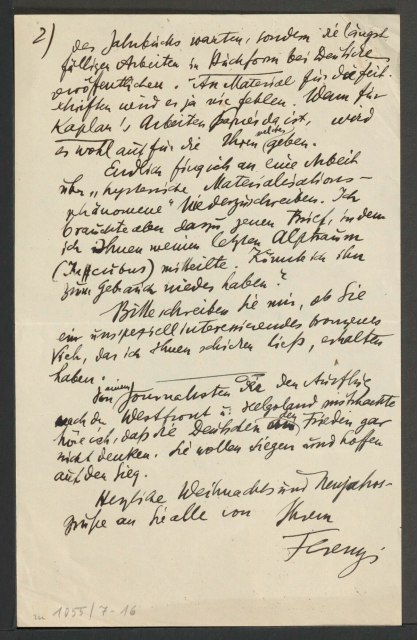 2)
des Jahrbuchs warten, sondern die längst
fälligen Arbeiten in Buchform bei Deuticke
veröffentlichen. - An Material für die Zeit-
schriften wird es ja nie fehlen. Wenn für
Kaplan's Arbeiten Papier da ist, wird
es wohl auch für die Ihren welches geben.
Endlich fing ich an eine Arbeit
über „hysterische Materialisations-
phänomene" niederzuschreiben. Ich
brauchte aber dazu jenen Brief, in dem
ich Ihnen meinen letzten Alptraum
(Incubus) mitteilte. Könnte ich ihn
zum Gebrauch wieder haben?
Bitte schreiben Sie mir, ob Sie
ein uns speziell interessierendes bronzenes
Vieh, das ich Ihnen schicken ließ, erhalten
haben.
Von einem Journalisten der den Ausflug
nach der Westfront u. Helgoland mitmachte
höre ich, daß die Deutschen an den Frieden gar
nicht denken. Sie wollen siegen und hoffen
auf den Sieg.
Herzliche Weihnachts und Neujahrs-
grüße an Sie alle von Ihrem
Ferenczi
1055/7-16